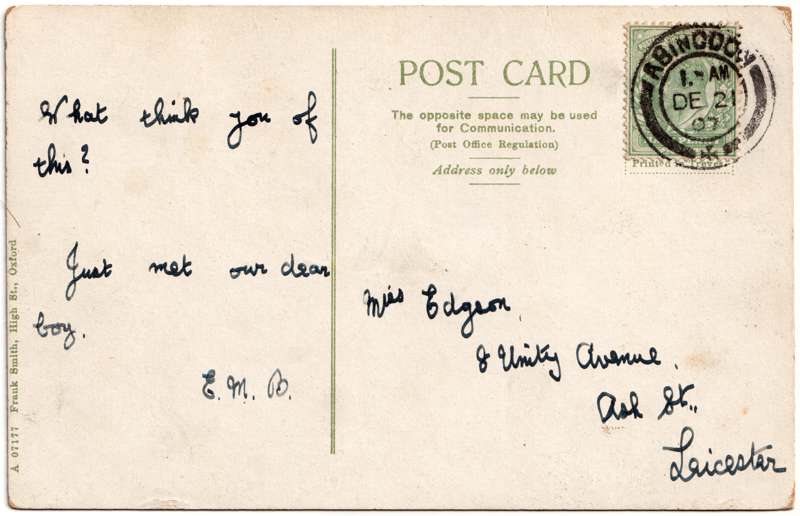 What think you of
this?
Just met our dear
boy.
E. M. B.
A 07177 Frank Smith, High St., Oxford
POST CARD
The opposite space may be used
for Communication.
(Post Office Regulation)
Address only below
ABINGDON
AM
DE 21
07
Printed in
Miss Edgson,
8 Unity Avenue,
Ash St.,
Leicester